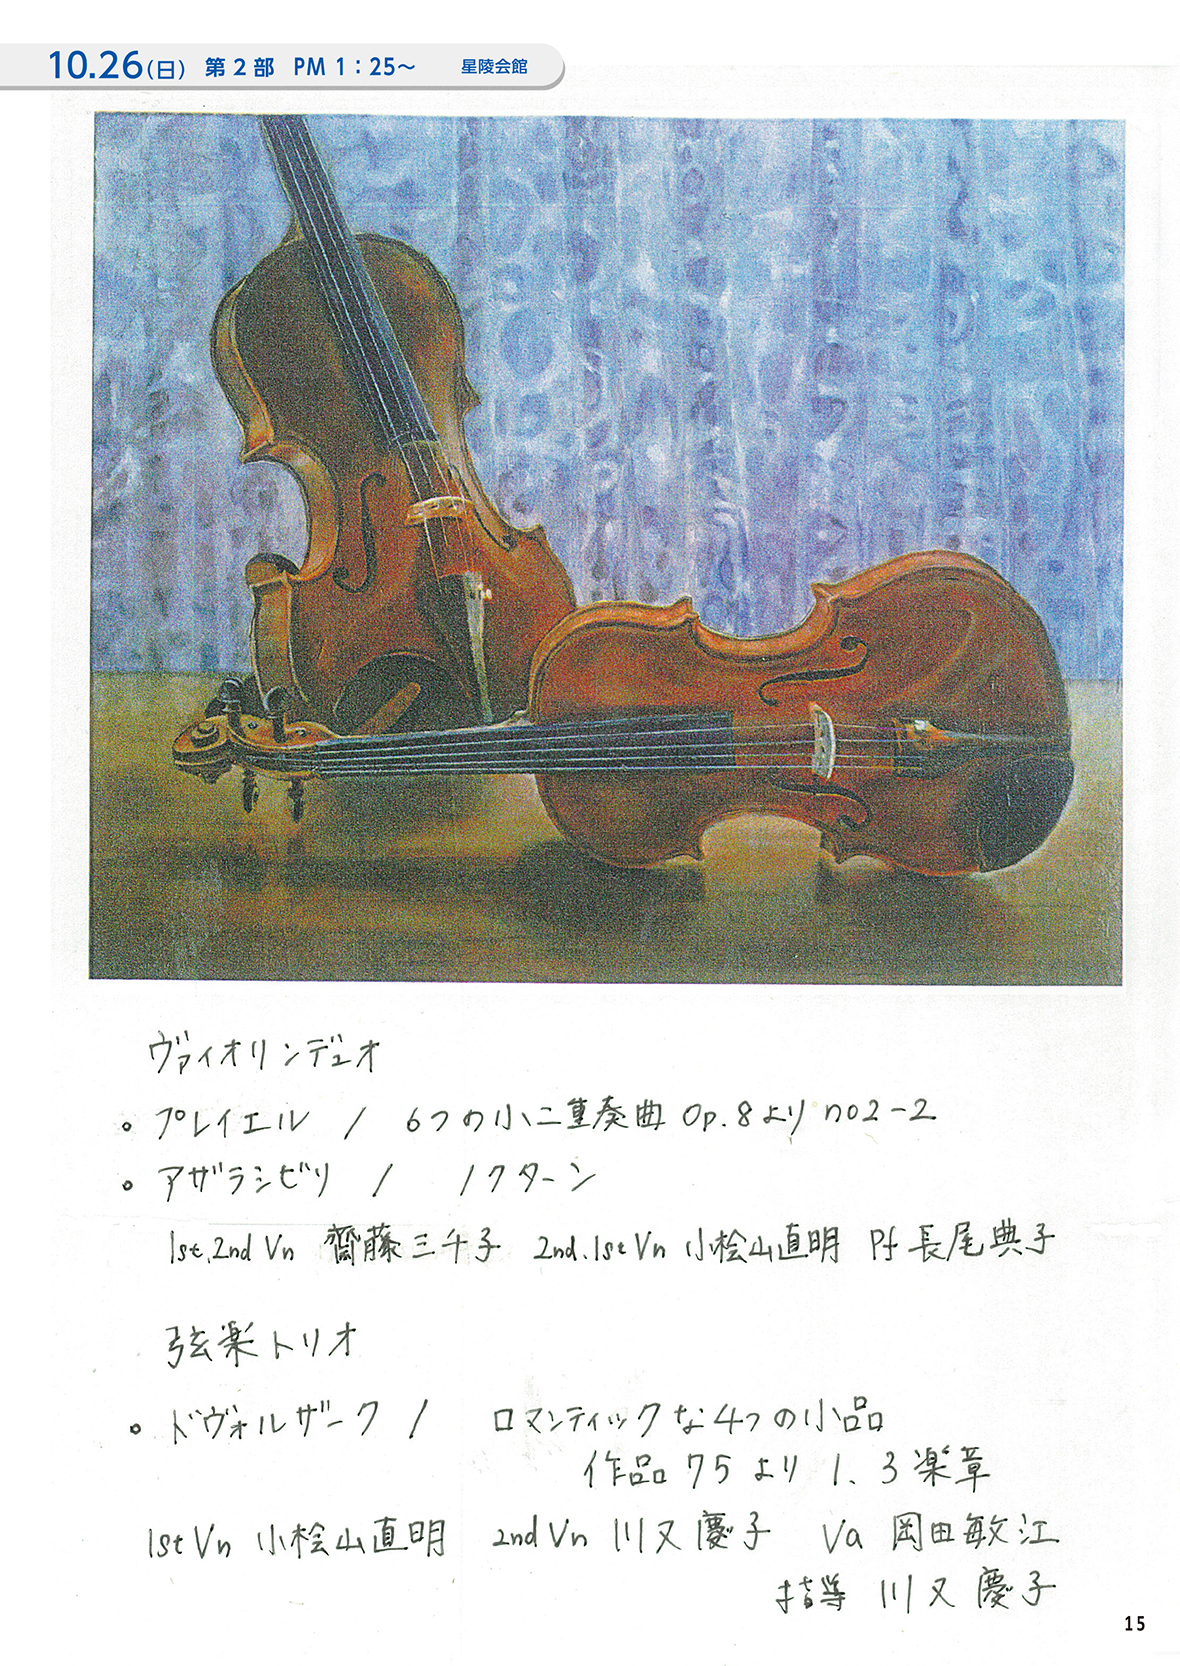 10.26(日) 第2部 PM 1:25〜 星陵会館
ヴァイオリンデュオ
。プレイエル / 6つの小二重奏曲 Op.8より no2-2
。アザラシビリ / ノクターン
1st.2nd Vn 齋藤三千子 2nd.1st Vn 小桧山直明 Pf 長尾典子
弦楽トリオ
。ドヴォルザーク / ロマンティックな4つの小品
作品75より 1、3楽章
1st Vn 小桧山直明 2nd Vn 川又慶子 Va 岡田敏江
指導 川又慶子
15